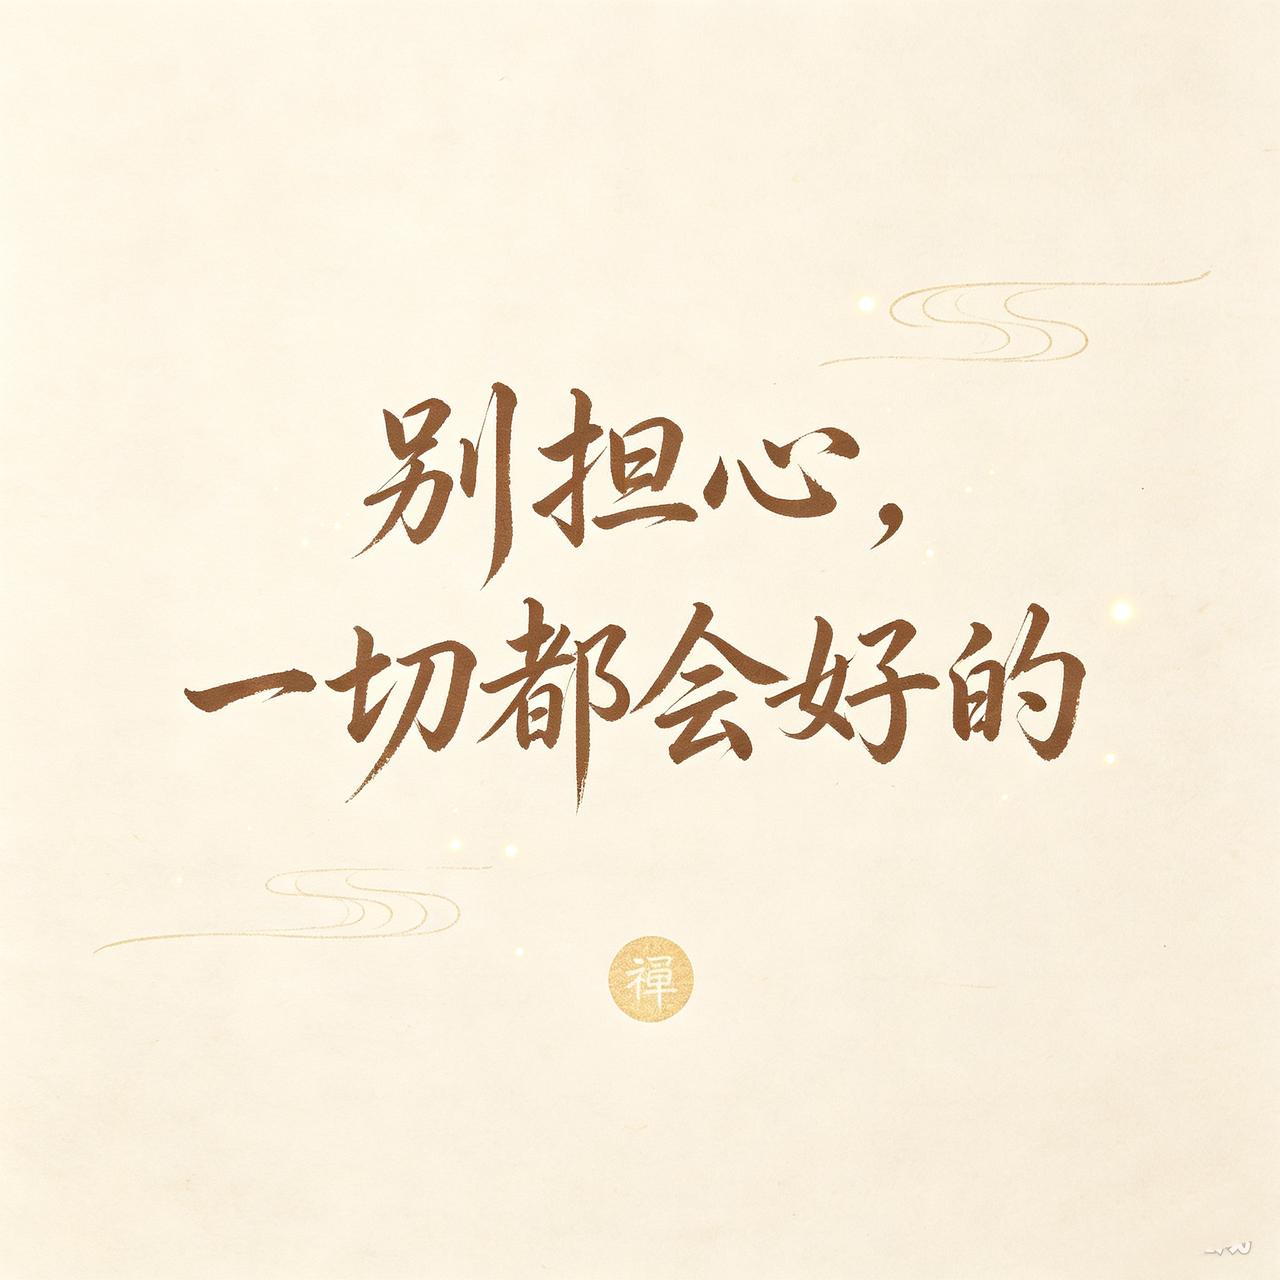 别担心，
一切都会好的
禪